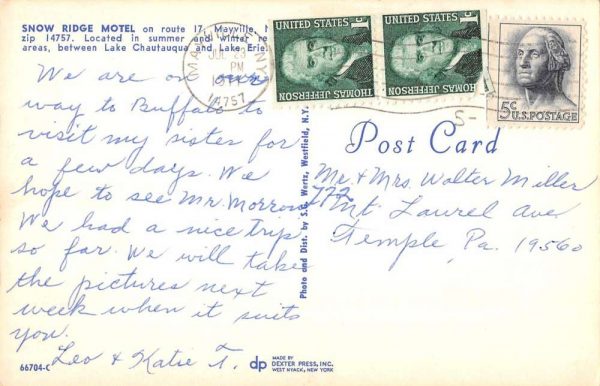 SNOW RIDGE MOTEL on route 17, Mayville, N
zip 14757. Located in summer and winter re
areas, between Lake Chautauqua and Lake Erie.
MAYVILLE NY
PM
14757
UNITED STATES 1¢
THOMAS JEFFERSON
UNITED STATES 1¢
THOMAS JEFFERSON
5¢ U.S. POSTAGE
We are on our
way to Buffalo to
visit my sister for
a few days. We
hope to see Mr. Morrow
We had a nice trip
so far. We will take
the pictures next
week when it suits
you.
Leo & Katie T.
66704-C
Photo and Dist. by S.G. Wertz, Westfield, N.Y.
Post Card
Mr. & Mrs. Walter Miller
772 Mt Laurel Ave
Temple Pa. 19560
dp MADE BY
DEXTER PRESS, INC.
WEST NYACK, NEW YORK